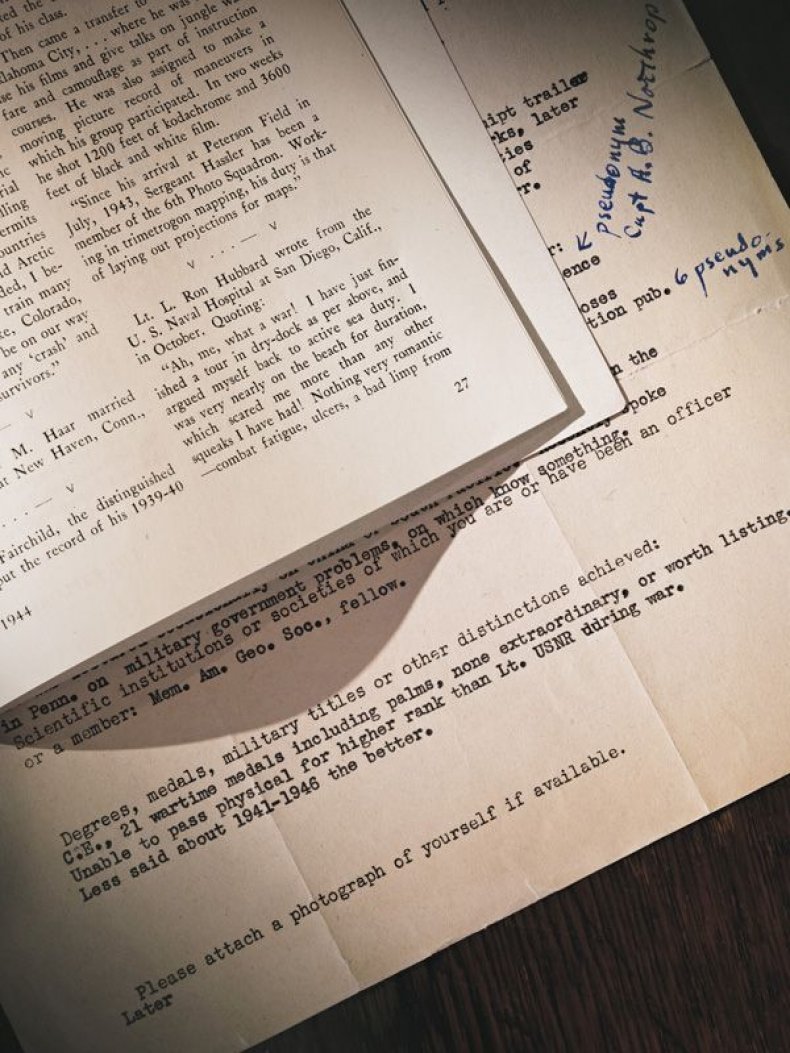 of his class.
Then came a transfer to
Oklahoma City, . . . where he was
use his films and give talks on jungle
fare and camouflage as part of instruction
courses. He was also assigned to make a
moving picture record of maneuvers in
which his group participated. In two weeks
he shot 1200 feet of kodachrome and 3600
feet of black and white film.
"Since his arrival at Peterson Field in
July, 1943, Sergeant Hasler has been a
member of the 6th Photo Squadron. Work-
ing in trimetrogon mapping, his duty is that
of laying out projections for maps."
V . . . — V
Lt. L. Ron Hubbard wrote from the
U. S. Naval Hospital at San Diego, Calif.,
in October. Quoting:
"Ah, me, what a war! I have just fin-
ished a tour in dry-dock as per above, and
argued myself back to active sea duty. I
was very nearly on the beach for duration,
which scared me more than any other
squeaks I have had! Nothing very romantic
—combat fatigue, ulcers, a bad limp from
27
ermits
ountries
d Arctic
ded, I be-
train many
Colorado,
be on our way
any 'crash' and
survivors."
V
M. Haar married
at New Haven, Conn.,
. . . — V
Fairchild, the distinguished
put the record of his 1939-40
1944
ipt trailer
ks, later
ties
of
r.
r:
pseudonym
Capt A.B. Northrop
ence
oses
tion pub. 6 pseudo-
nyms
n the
spoke
in Penn. on military government problems, on which know something.
Scientific institutions or societies of which you are or have been an officer
or a member: Mem. Am. Geo. Soc., fellow.
Degrees, medals, military titles or other distinctions achieved:
C.E., 21 wartime medals including palms, none extraordinary, or worth listing.
Unable to pass physical for higher rank than Lt. USNR ddring war.
Less said about 1941-1946 the better.
Please attach a photograph of yourself if available.
Later